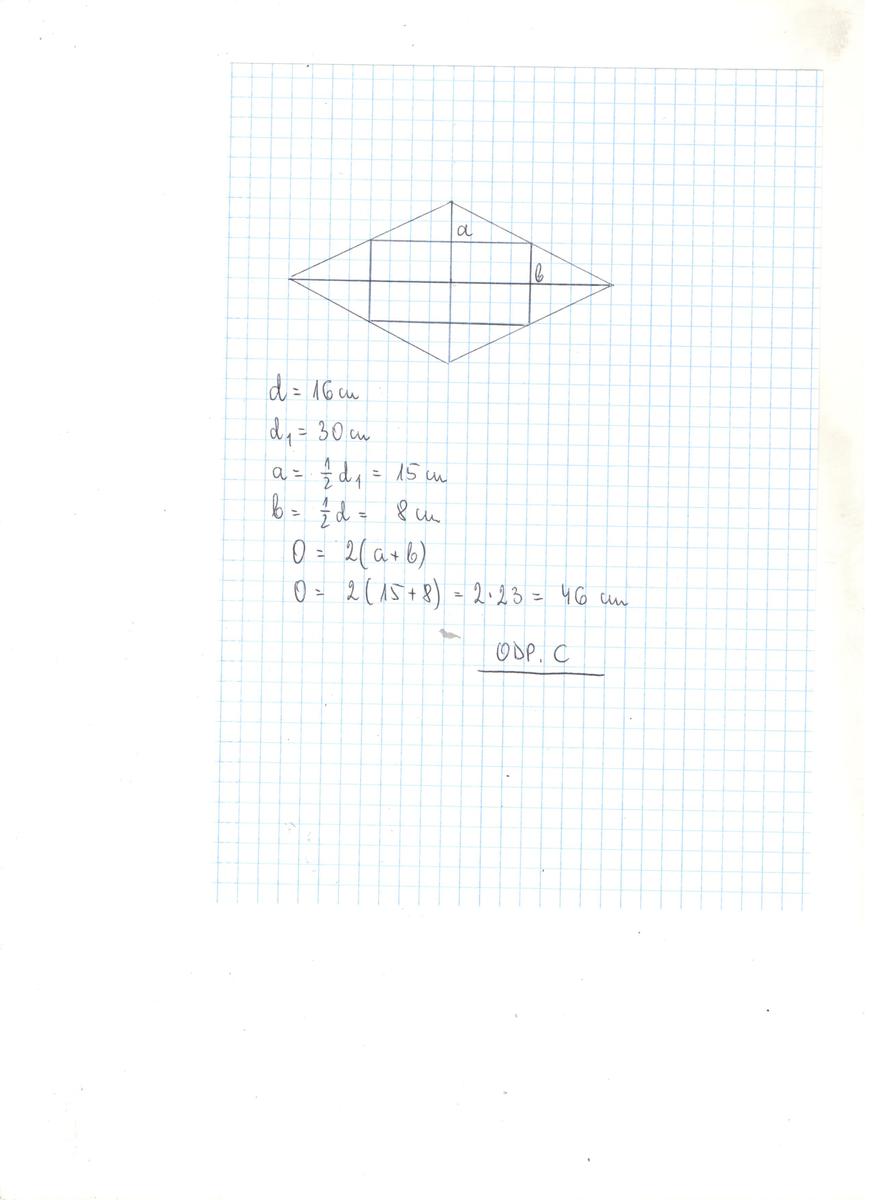 a
b
d = 16 cm
d₁ = 30 cm
a = ½ d₁ = 15 cm
b = ½ d = 8 cm
O = 2(a+b)
O = 2(15+8) = 2·23 = 46 cm
ODP. C